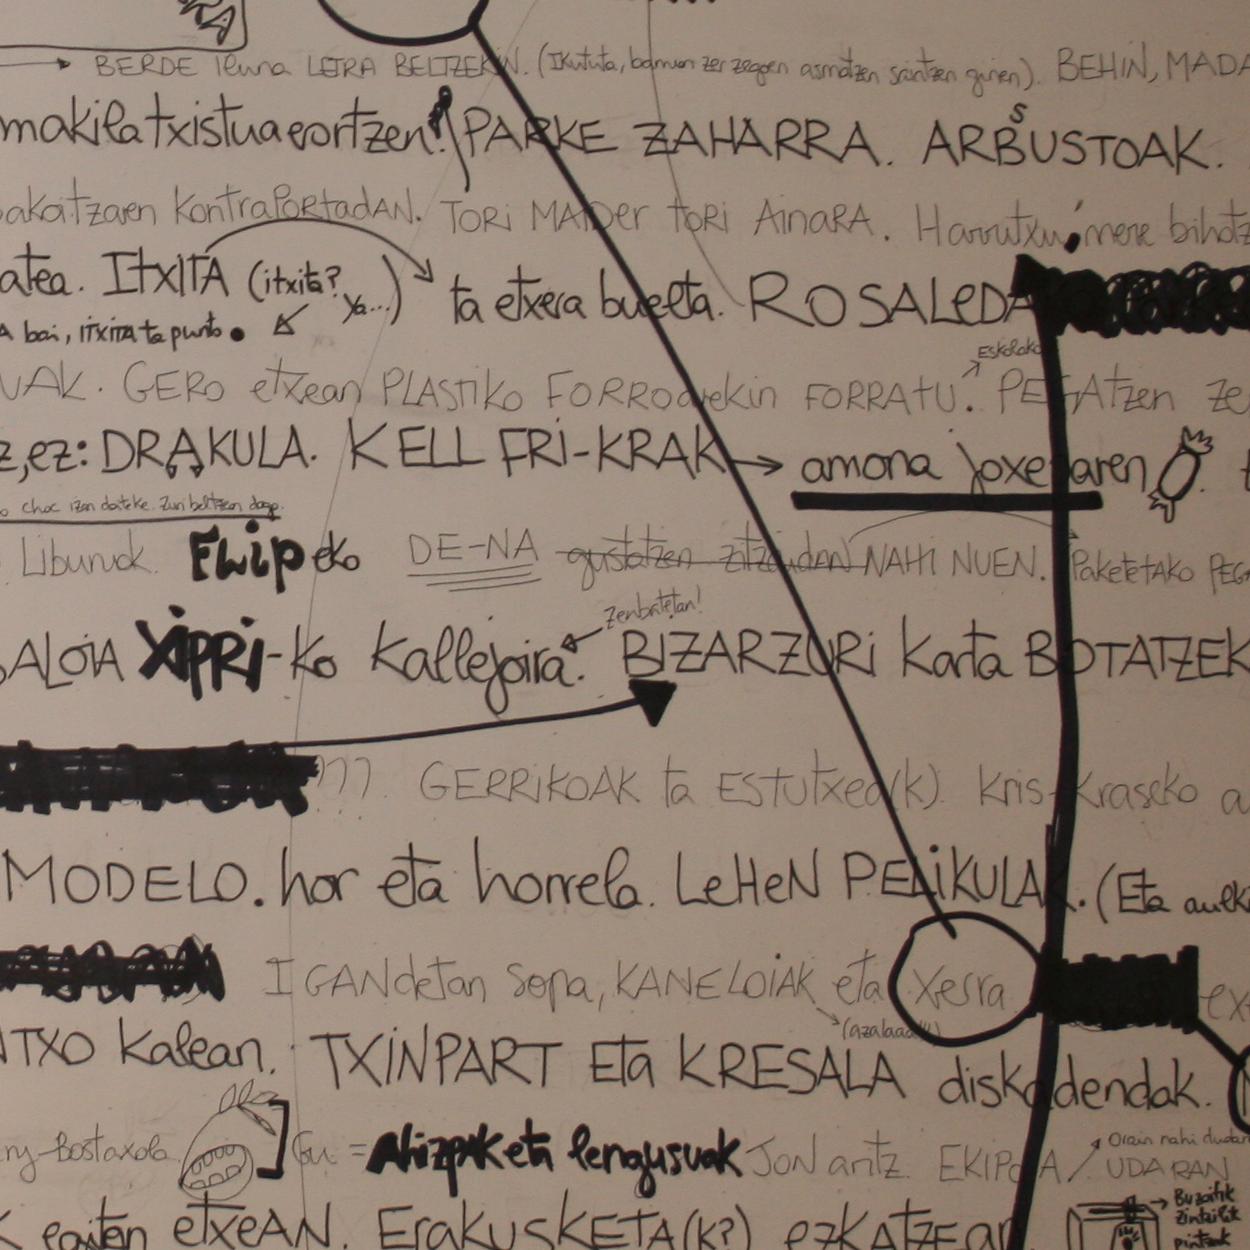 BERDE iluna LETRA BELTZEKIN. (Ikututa, barruan zer zegoen asmatzen saiatzen ginen). BEHIN, MADA
makila txistua eortzen! PARKE ZAHARRA. ARBUSTOAK.
S
bakaitzaen KontraPortadAN. TORi MAIDer tORi AinARA. Harrutxu, nere bihotz
atea. ItxITA (itxita? ya...) ta etxera buelta. ROSALeDA
A bai, itxita ta punto.
Eskolako
UAK. GERO etxean PLASTiKO FORROarekin FORRATU. PEGAtzen ze
z, ez: DRAKULA. KELL FRI-KRAK → amona joxe aren
o choc izan daiteke. Zuri beltzean dago.
Liburuak. FLIIPeko DE-NA gustatzen zitzaidAN NAHi NUEN. PaketeTAKO PEG
Zenbatetan!
ALOiA XiPRi-Ko Kallejoira. BIZARZURi Karta BOTATZEK
??? GERRiKOAK ta ESTUtxeo(k). Kris-Kraseko a
MODELO. hor eta horrela. LeHeN PELiKULAK. (Eta aulk
IGANDetan sopa, KANELOiAK eta xerra ex
(azalaaa!!!)
ATXO Kalean. TXiNPART Eta KRESALA diskadendak.
ny-Bostaxola. Gu = Ahizpak eta lengusuak JON aritz. EKIPOA / UDARAN
Orain nahi dudan
K egiten etxEAN. ErakUSKETA(K?) ezKATZEAN
Buzoitik
zintzilik
pintzak